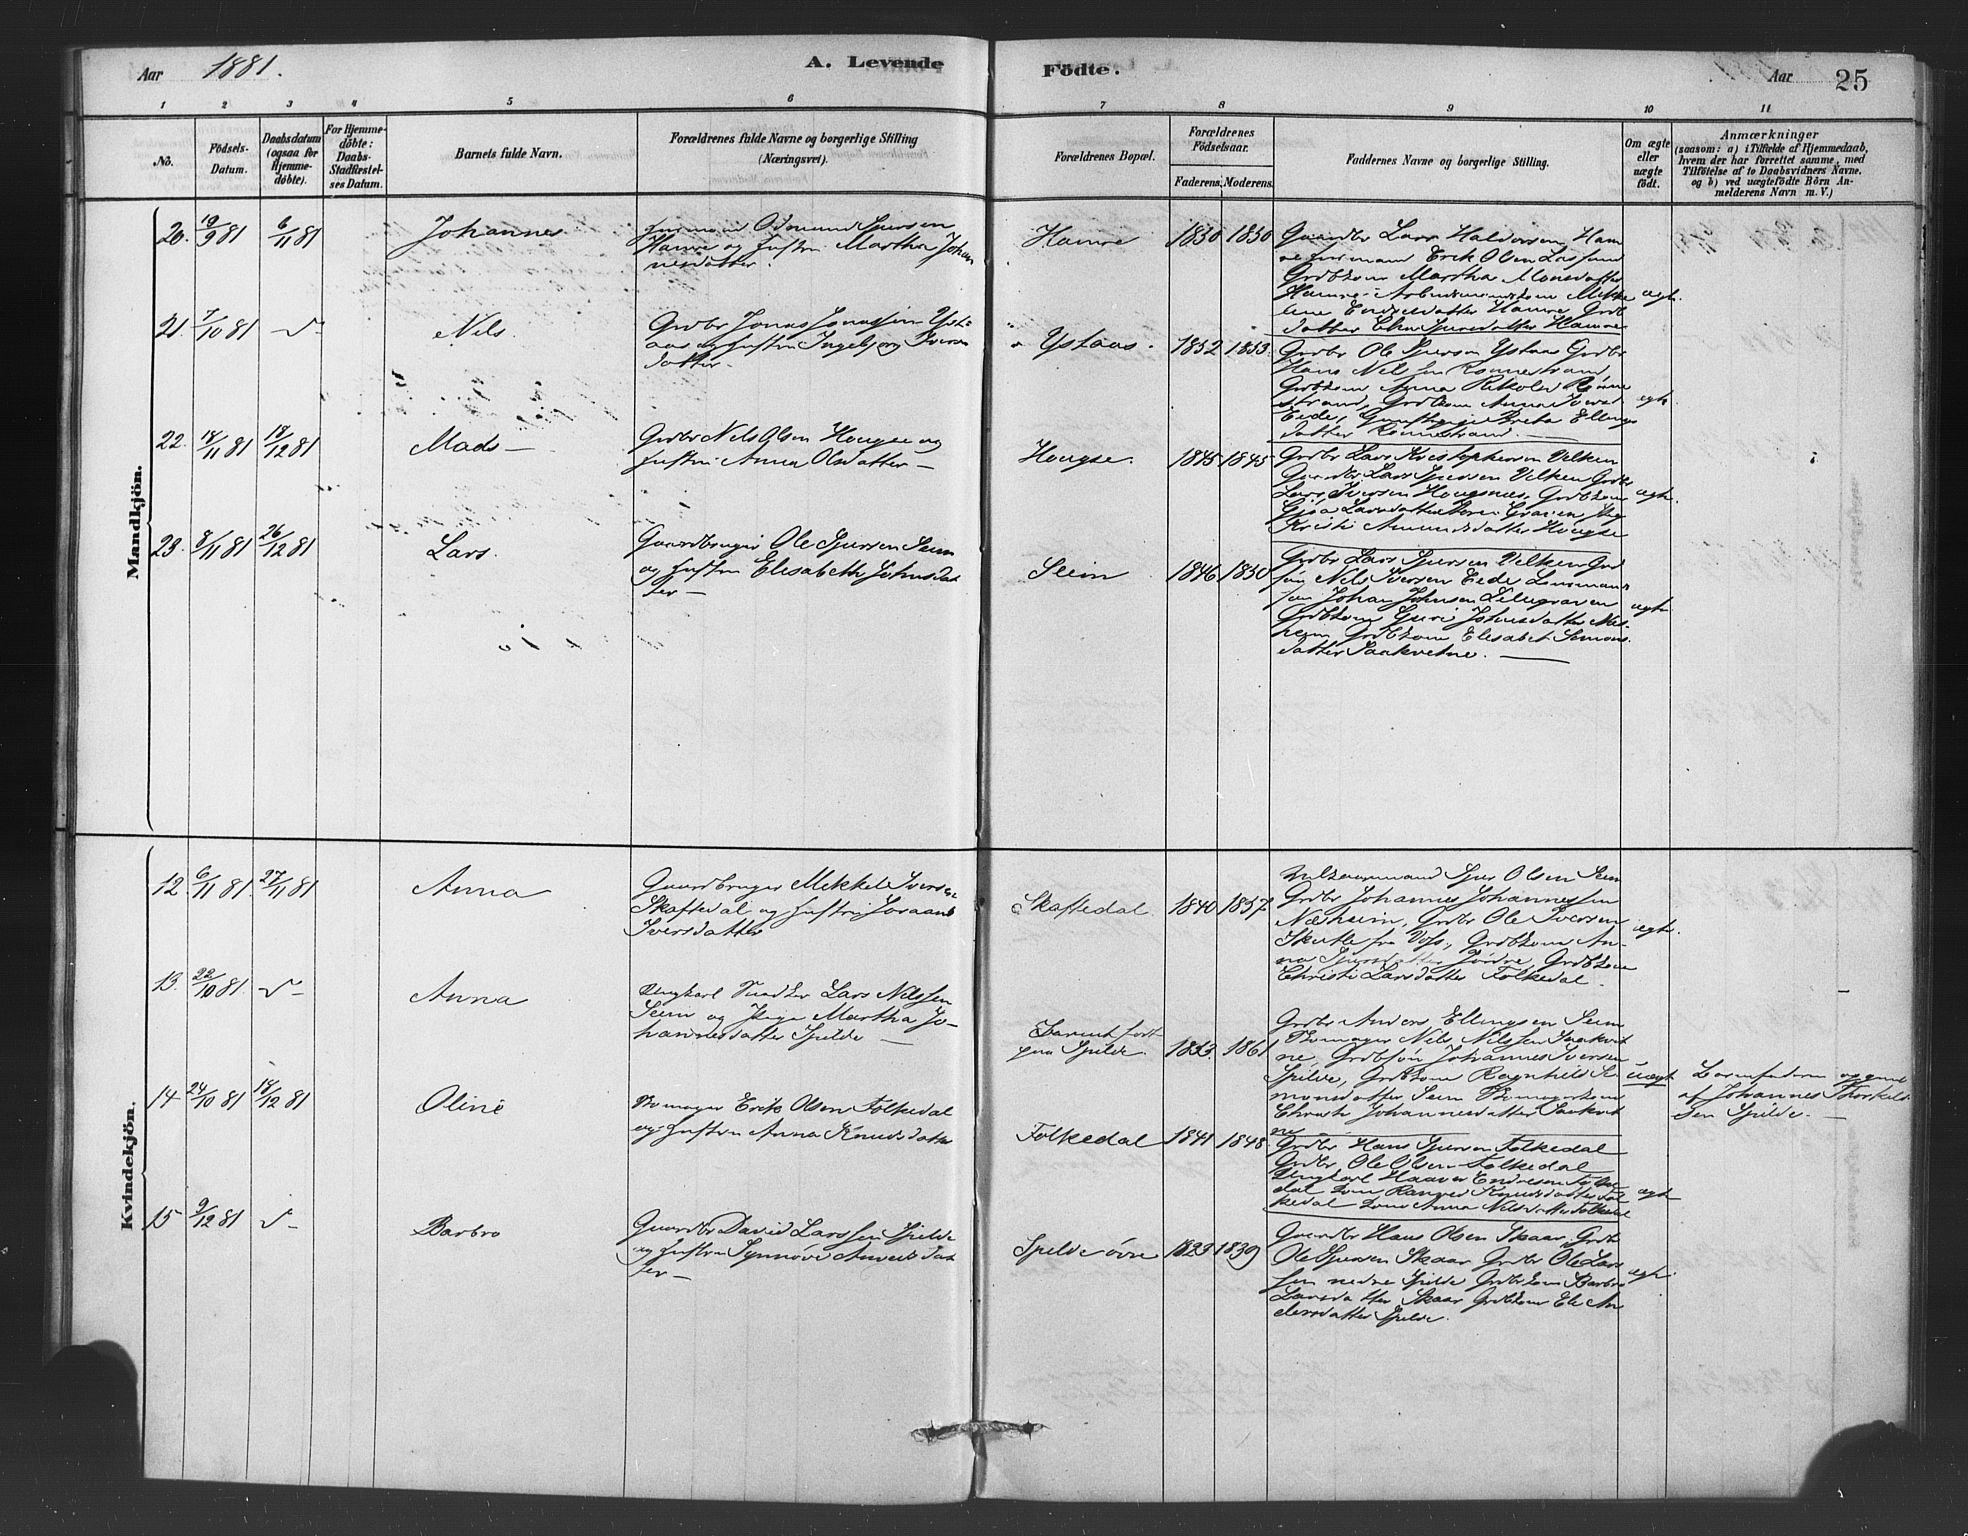 Aar 1881.
A. Levende
Födte.
Aar
25
1
2
3
4
5
6
7
8
9
10
11
No.
Födsels-
Datum.
Daabsdatum
(ogsaa for
Hjemme-
døbte).
For Hjemme-
døbte:
Daabs-
Stadfæstel-
ses Datum.
Barnets fulde Navn.
Forældrenes fulde Navne og borgerlige Stilling
(Næringsvei).
Forældrenes Bopæl.
Forældrenes
Födselsaar.
Faderens.
Moderens.
Faddernes Navne og borgerlige Stilling.
Om ægte
eller
uægte
födt.
Anmærkninger
(saasom: a) i Tilfælde af Hjemmedaab,
hvem der har forrettet samme, med
Tilföielse af to Daabsvidners Navne,
og b) ved uægtefödte Börn An-
melderens Navn m. V.)
Mandkjön.
20. 19/9 81 6/11 81 Johannes
Odmund Sjursen
Hamre og Hustru Martha Johan
nesdatter.
Hamre 1830 1830
Gaardbr Lars Haldorsen Ham
re Erik Olsen
Grdbkone Martha Monsdatter
Hamre
ægte.
21. 7/10 81 Nels.
Grdbr Jonas Jonassen Yst-
aas og Hustru Ingebjorg Ivers
datter.
Ystaas. 1852 1853.
Grdbr Ole Sjursen Ystaas Grdbr
Hans Nelssen Rønnestrand
Grdbkone Anna
strand, Grdbkone Anna
Eide, Breta Ellings
datter Rønnestrand.
ægte
22. 18/11 81 18/12 81 Mads
Grdbr Nels Olsen Hougse og
Hustru Anna Olsdatter
Hougse. 1845 1845
Grdbr Lars Kristophersen Velken
Gaardbr Lars Sjursen Velken Grdbr
Lars Iversen Hougsnæs, Grdbkone
Gjøa Larsdatter Graven
Kristi Amundsdatter Hougse
ægte.
23. 8/11 81 26/12 81 Lars.
Gaardbruger Ole Sjursen Seim
og Hustru Elisabeth Johnsdat
ter
Seim 1846 1850
Grdbr Lars Sjursen Velken Grd
Nels Iversen Eide Lensmans
søn Johan Johnsen Lillegraven
Grdbkone Guri Johnsdatter Næs-
heim Grdbkone Elisabet Simons
datter Saakvetne.
ægte
Kvindekjön.
12. 6/11 81 27/11 81 Anna
Gaardbruger Mekkel Iversen
Skaftedal og Hustru
Iversdatter
Skaftedal 1840 1857
Sjur Olsen Seim
Grdbr Johannes Johannessen
Næsheim, Grdbr Ole Iversen
Skutle fra Vos, Grdbkone An-
na Sjursdatter Jordre, Grdbkone
Christi Larsdatter Folkedal.
ægte.
13. 22/10 81 Anna
Ungkarl Lars Nilssen
Seim og Pige Martha Jo-
hannesdatter Spilde
Barnet født
paa Spilde. 1853. 1861
Grdbr Anders Ellingsen Seim
Nels Nelssen Saakvet
ne, Grdbsøn Johannes Iversen
Spilde, Grdbkone Ragnhild Si-
monsdatter Seim
Christi Johannesdatter Saakvet
ne
uægte
Barnefaderen opgivet
af Johannes Thorkels
sen Spilde.
14 24/10 81 18/12 81 Oline
Erik Olsen Folkedal
og Hustru Anna Knudsdatter
Folkedal 1841 1848
Grdbr Hans Sjursen Folkedal
Grdbr Ole Olsen Folkedal
Ungkarl Haaver Endresen Folke
dal Kone Ranveig Knudsdatter Fol
kedal Kone Anna Nelsdatter Folkedal
ægte
15 9/12 81 Barbro
Gaardbr David Larssen Spilde
og Hustru Synnøve Amundsdat
ter
Spilde øvre 1823 1839
Gaardbr Hans Olsen Skaar, Grdb
Ole Sjursen Skaar Grdbr Ole Lars
sen nedre Spilde Grdbkone Barbro
Larsdatter Skaar Grdbkone Eli An
dersdatter Spilde.
ægte.